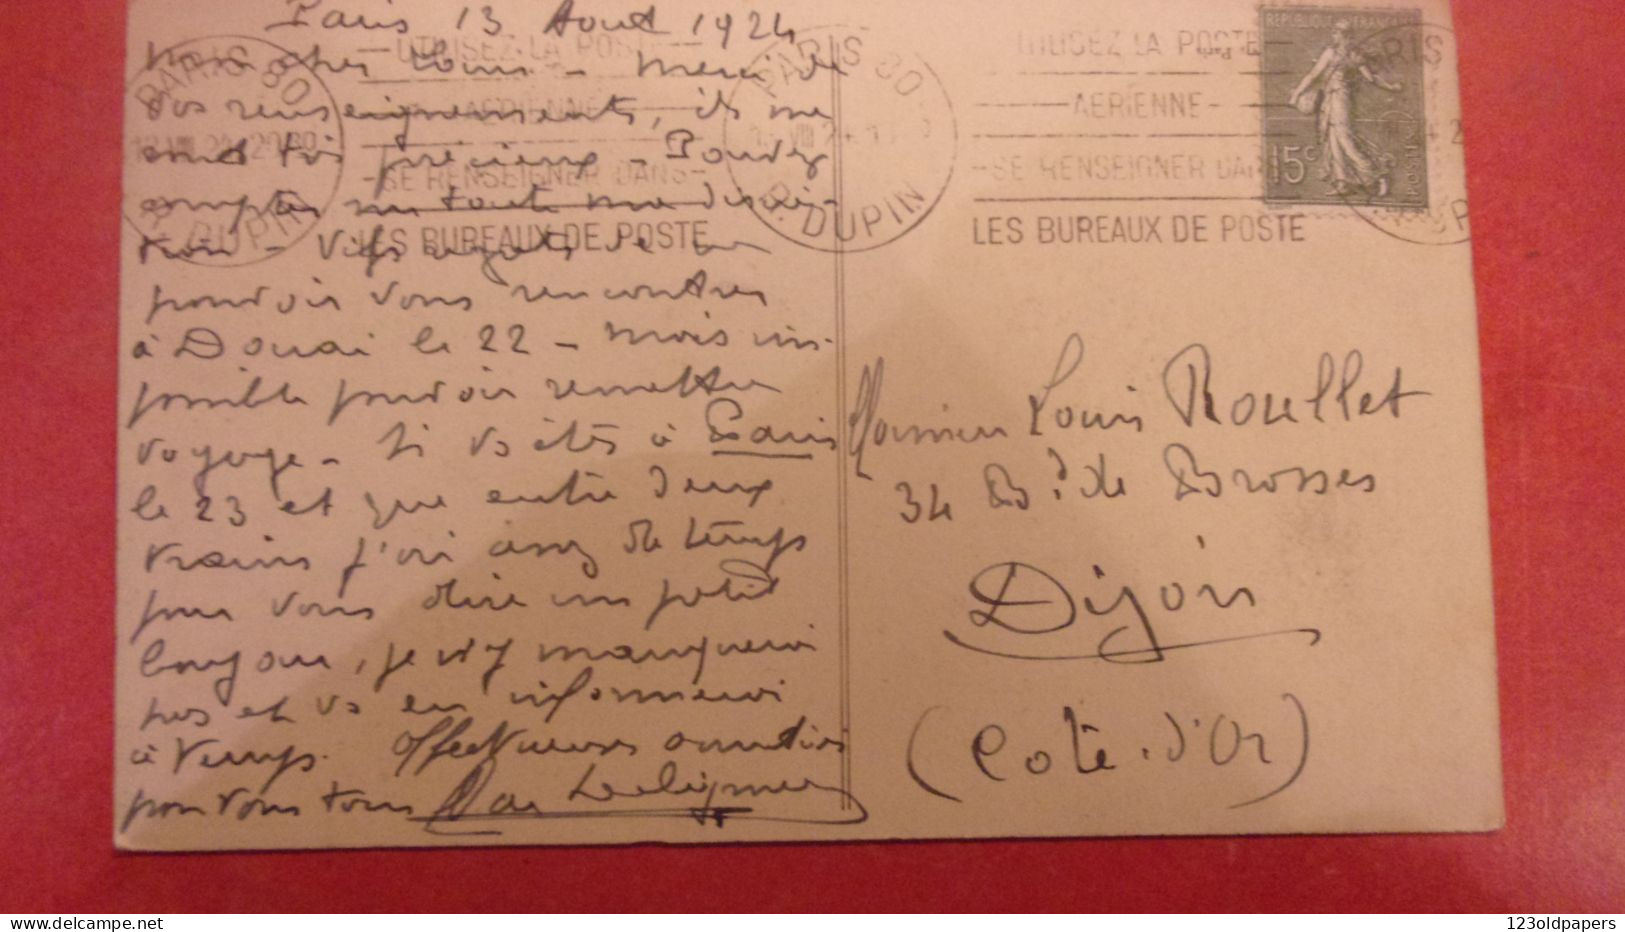 Paris 13 Aout 1924
Mon cher Louis – Merci de
vos renseignements, ils me
sont très précieux – Pouvez
compter sur toute ma discré-
tion – Vifs regrets de ne
pouvoir vous rencontrer
à Douai le 22 – mais im-
possible pouvoir remettre
voyage – Si vs êtes à Paris
le 23 et que entre deux
trains j'ai assez de temps
pour vous dire un petit
bonjour, je n'y manquerai
pas et vs en informerai
à temps. Affectueuses amitiés
pour vous tous
UTILISEZ LA POSTE
AERIENNE
SE RENSEIGNER DANS
LES BUREAUX DE POSTE
PARIS 80
R. DUPIN
PARIS 80
R. DUPIN
UTILISEZ LA POSTE
AERIENNE
SE RENSEIGNER DANS
LES BUREAUX DE POSTE
REPUBLIQUE FRANÇAISE
15c
POSTES
Monsieur Louis Roullet
34 Bd de Brosses
Dijon
(Cote-d'Or)
123oldpapers